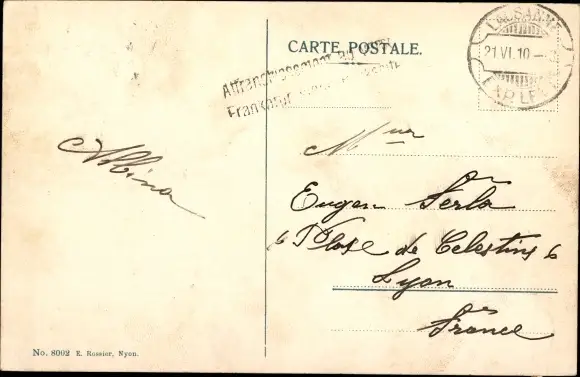 CARTE POSTALE.
LAUSANNE
21.VI.10
Affranchissement au
Frankatur
Albina
Eugen Ferla
6 Plase de Celestins 6
Lyon
France
No. 8002 E. Rossier, Nyon.